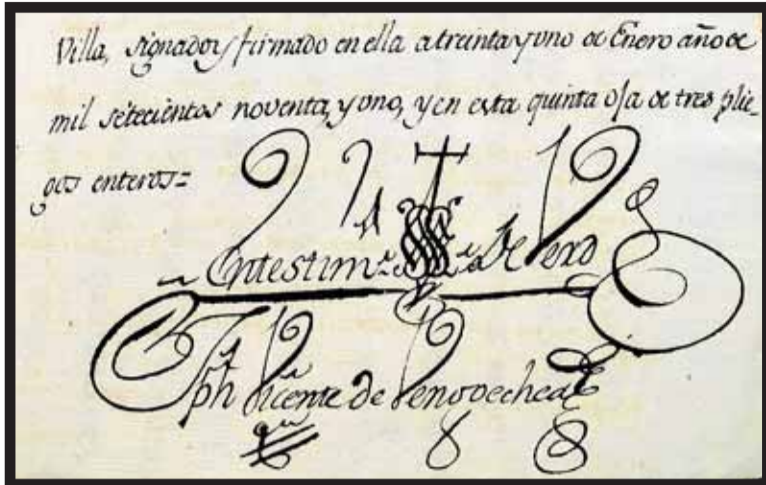 Villa, signado y firmado en ella a treinta y uno de Enero año de
mil setecientos noventa, y uno, y en esta quinta oja de tres plie-
gos enteros=
En testim.º de Verd
Jph Vicente de